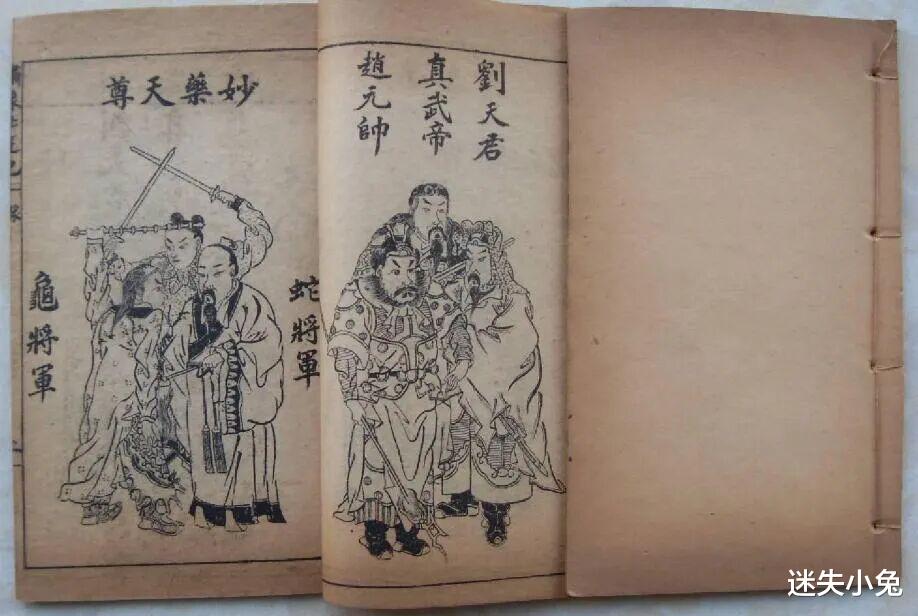 劉天君
真武帝
趙元帥
妙藥天尊
蛇將軍
龜將軍
迷失小兔